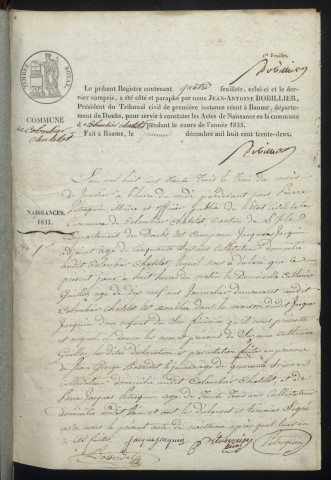 1er Feuillet.
Robillier
TIMBRE ROYAL
Le présent Registre contenant quatre feuillets, celui-ci et le
dernier compris, a été coté et paraphé par nous JEAN-ANTOINE ROBILLIER,
Président du Tribunal civil de première instance séant à Baume, département
du Doubs, pour servir à constater les Actes de Naissance en la commune
COMMUNE
de Colombier
Chatelot
d Colombier Chatelot pendant le cours de l'année 1833.
Fait à Baume, le décembre mil huit cent trente-deux.
Robillier
NAISSANCES.
1833.
L'an mil huit cent trente trois le trois du mois
de Janvier à l'heure de midi pardevant nous Pierre
Maire et officier public de l'état civil de la
Commune de Colombier Chatelot, Canton de
Département du Doubs est comparu Jacques Jacquin
âgé de cinquante ans cultivateur domicilié
audit Colombier Chatelot, lequel nous a déclaré que le
présent jour à huit heures du matin la Demoiselle Catherine
âgée de dix neuf ans domiciliée audit
Colombier Chatelot est accouchée dans la maison dudit Jacques
Jacquin d'un enfant du sexe féminin qu'il nous présente
et auquel il donne les noms et prénoms de Catherine
les dites déclaration et présentation faites en présence
de Jean George âgé de quarante
cultivateur domicilié audit Colombier Chatelot, et de
Pierre Jacques âgé de trente trois ans cultivateur
domicilié audit lieu et ont les déclarant et témoins signé
avec nous le présent acte de naissance après que lecture
a été faite Jacque jacquin